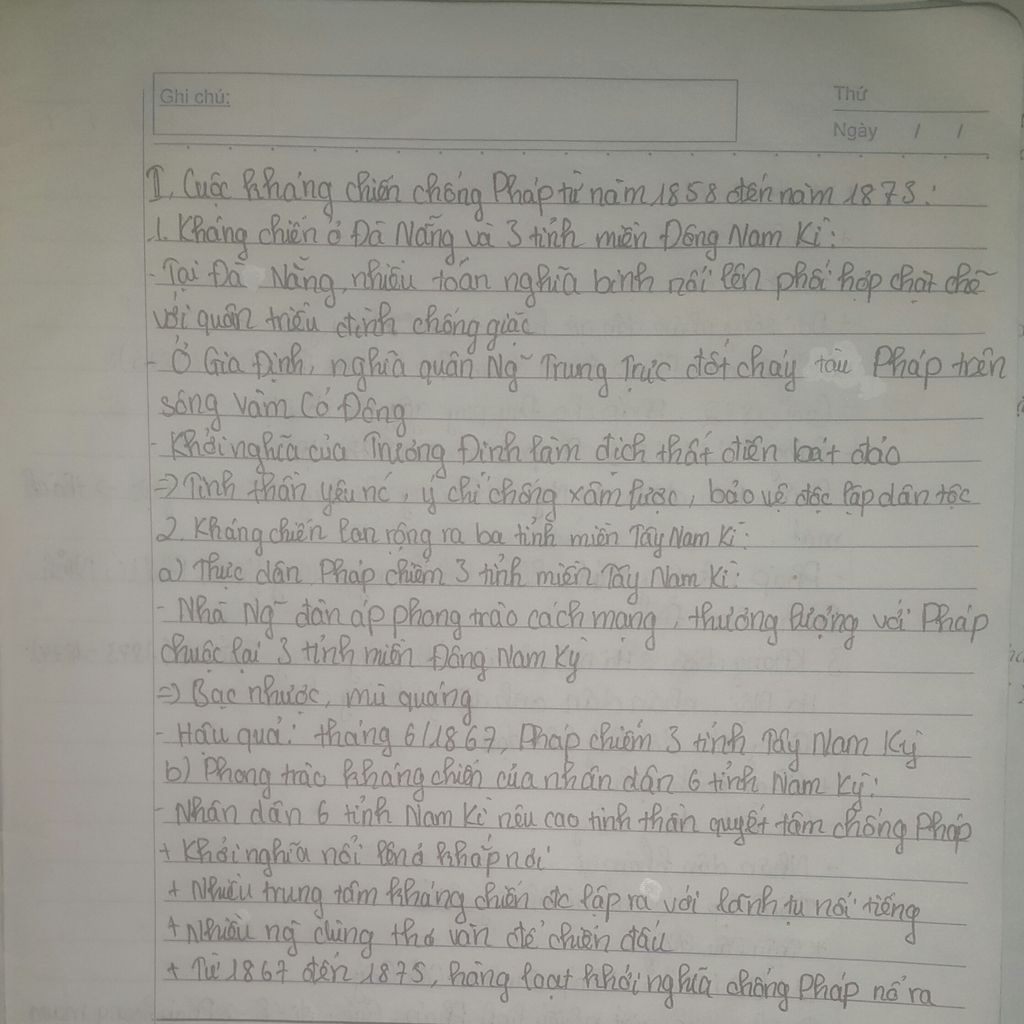 Ghi chú:
Thứ
Ngày / /
II. Cuộc kháng chiến chống Pháp từ năm 1858 đến năm 1873:
1. Kháng chiến ở Đà Nẵng và 3 tỉnh miền Đông Nam Kì:
- Tại Đà Nẵng, nhiều toán nghĩa binh nổi lên phối hợp chặt chẽ
với quân triều đình chống giặc
- Ở Gia Định, nghĩa quân Ng~ Trung Trực đốt cháy tàu Pháp trên
sông Vàm Cỏ Đông
- Khởi nghĩa của Trương Định làm địch thất điên bát đảo
=> Tinh thần yêu nc, ý chí chống xâm lược, bảo vệ độc lập dân tộc
2. Kháng chiến lan rộng ra ba tỉnh miền Tây Nam Kì:
a) Thực dân Pháp chiếm 3 tỉnh miền Tây Nam Kì:
- Nhà Ng~ đàn áp phong trào cách mạng, thương lượng với Pháp
chuộc lại 3 tỉnh miền Đông Nam Kỳ
=> Bạc nhược, mù quáng
- Hậu quả: tháng 6/1867, Pháp chiếm 3 tỉnh Tây Nam Kỳ
b) Phong trào kháng chiến của nhân dân 6 tỉnh Nam Kỳ:
- Nhân dân 6 tỉnh Nam Kì nêu cao tinh thần quyết tâm chống Pháp
+ Khởi nghĩa nổi lên ở khắp nơi
+ Nhiều trung tâm kháng chiến đc lập ra với lãnh tụ nổi tiếng
+ Nhiều ng dùng thơ văn để chiến đấu
+ Từ 1867 đến 1875, hàng loạt khởi nghĩa chống Pháp nổ ra